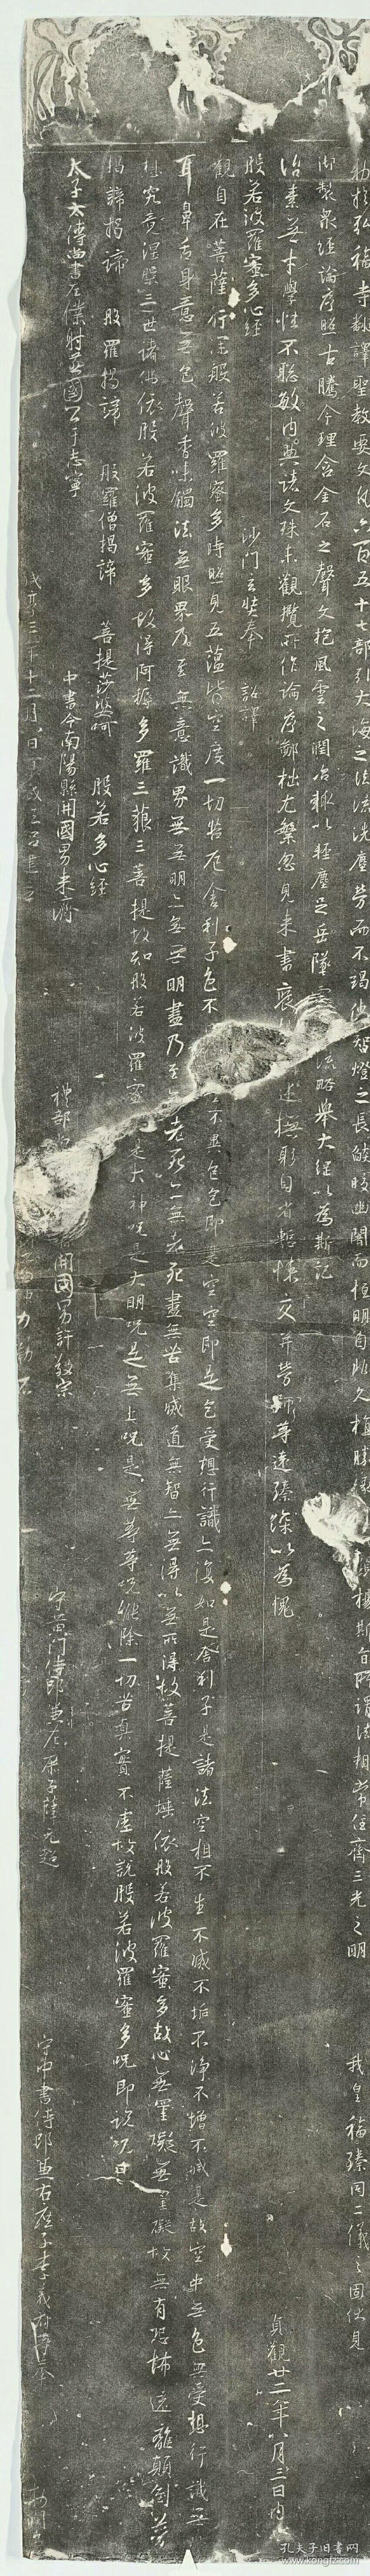 勑於弘福寺翻譯聖教要文凡六百五十七部引大海之法流洗塵勞而不竭傳智燈之長焰皎幽闇而恒明自非久植勝緣 顯揚斯旨所謂法相常住齊三光之明 我皇福臻同二儀之固伏見
御製衆經論序照古騰今理含金石之聲文抱風雲之潤治輒以輕塵足岳墜露 流略舉大綱以為斯記
治素無才學性不聰敏内典諸文殊未觀攬所作論序鄙拙尤繁忽見來書褒 述撫躬自省慙悚交并勞師等遠臻深以為愧
貞觀廿二年八月三日内
般若波羅蜜多心經
沙門玄奘奉 詔譯
觀自在菩薩行深般若波羅蜜多時照見五蘊皆空度一切苦厄舍利子色不 空不異色色即是空空即是色受想行識亦復如是舍利子是諸法空相不生不滅不垢不淨不增不減是故空中無色無受想行識無
耳鼻舌身意無色聲香味觸法無眼界乃至無意識界無無明亦無無明盡乃至無老死亦無老死盡無苦集滅道無智亦無得以無所得故菩提薩埵依般若波羅蜜多故心無罣礙無罣礙故無有恐怖遠離顛倒夢
想究竟涅槃三世諸佛依般若波羅蜜多故得阿耨多羅三藐三菩提故知般若波羅蜜 是大神呪是大明呪是無上呪是無等等呪能除一切苦真實不虚故說般若波羅蜜多呪即說呪曰
揭諦揭諦 般羅揭諦 般羅僧揭諦 菩提莎婆呵 般若多心經
太子太傅尚書左僕射燕國公于志寧
中書令南陽縣開國男来濟
禮部 開國男許敬宗
守黄門侍郎兼左庶子薛元超
守中書侍郎兼右庶子李義府等奉
咸亨三年十二月八日京城法侣建立
力勒石
孔夫子旧書网
www.kongfz.com